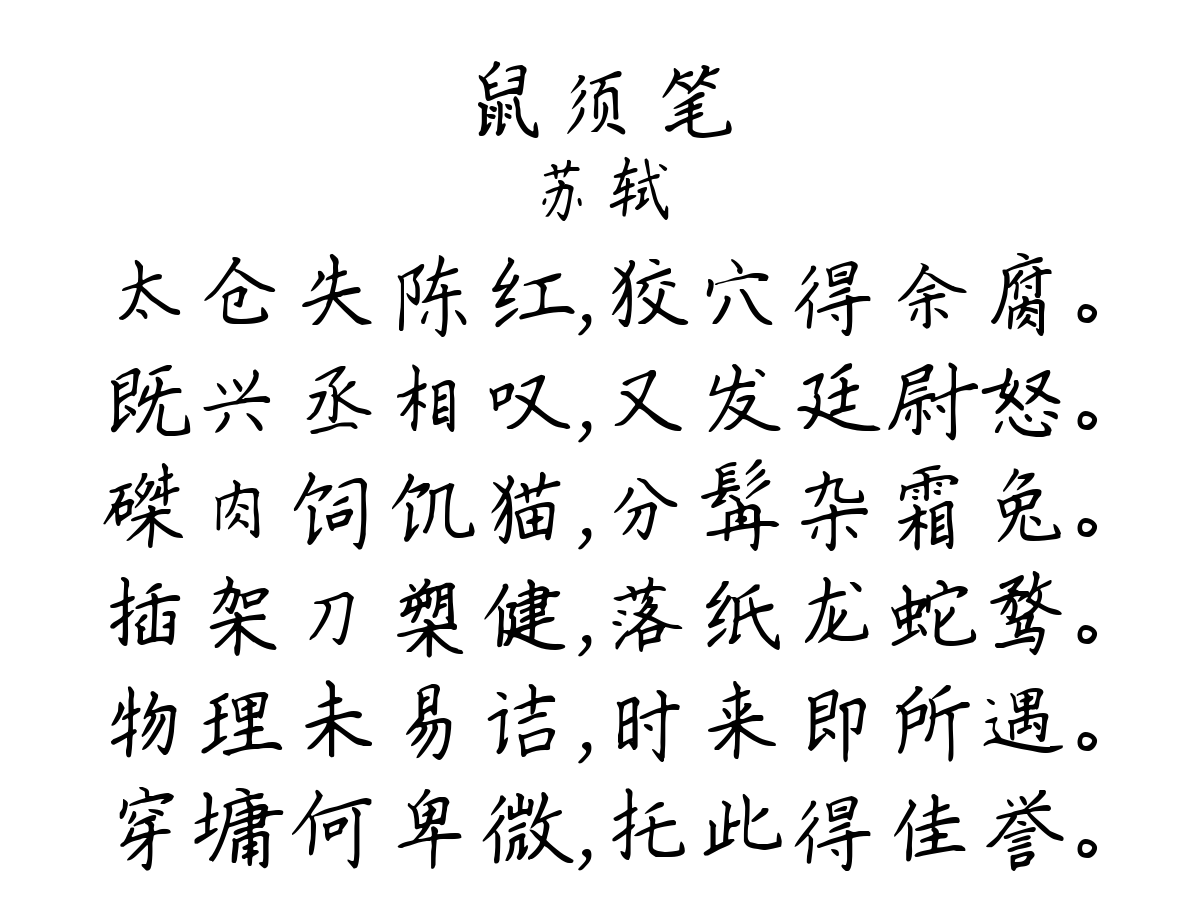 鼠须笔
苏轼
太仓失陈红,狡穴得余腐。
既兴丞相叹,又发廷尉怒。
磔肉饲饥猫,分髯杂霜兔。
插架刀槊健,落纸龙蛇骛。
物理未易诘,时来即所遇。
穿墉何卑微,托此得佳誉。